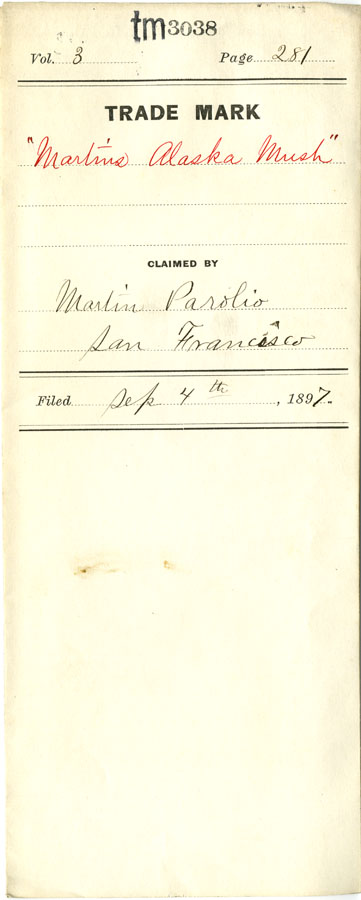 tm3038
Vol. 3 Page 281
TRADE MARK
"Martins Alaska Mush"
CLAIMED BY
Martin Parolio
San Francisco
Filed Sep 4th, 1897.